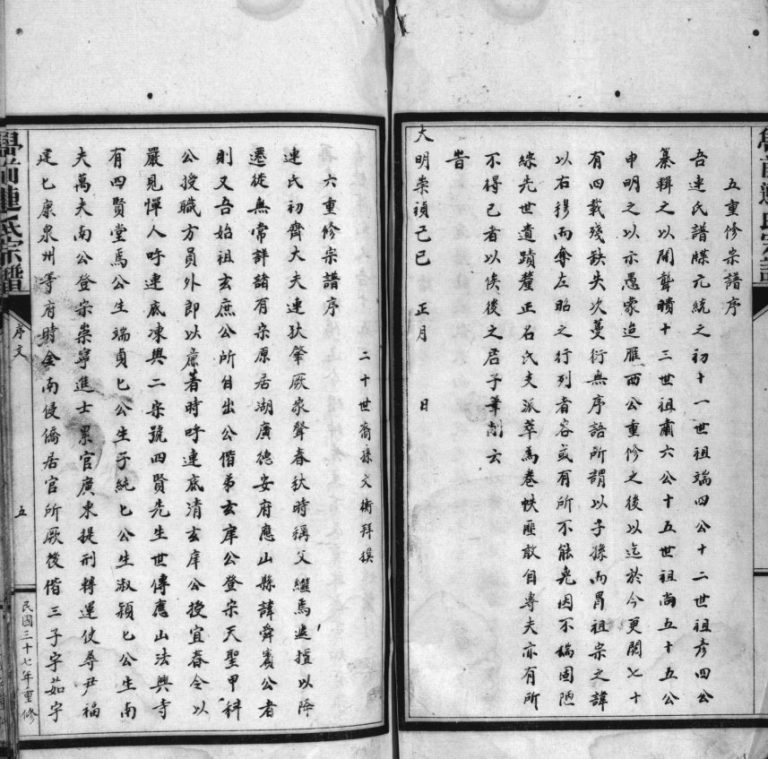 五重修宗譜序
吾連氏譜牒元統之初十一世祖端四公十二世祖彥四公
纂輯之以開聾瞶十三世祖肅六公十五世祖尚五十五公
申明之以示愚蒙迨雁西公重修之後以迄於今更閱七十
有四載殘缺失次蔓衍無序語所謂以子孫而冒祖宗之諱
以右穆而奪左昭之行列者容或有所不能免因不揣固陋
綜先世遺蹟釐正名氏支派萃為卷帙匪敢自專夫亦有所
不得已者以俟後之君子筆削云
旹
大明崇禎己巳 正月 日
六重修宗譜序
二十世裔孫文衡拜撰
連氏初齊大夫連狄肇厥家聲春秋時稱父繼焉遞擅以降
遷徙無常詳諸有宋原居湖廣德安府應山縣諱舜賓公者
則又吾始祖玄庶公所自出公偕弟玄庠公登宋天聖甲科
公授職方員外郎以廉著時呼連底清玄庠公授宜春令以
嚴見憚人呼連底凍與二宋號四賢先生世傳應山法興寺
有四賢堂焉公生端貞匕公生子純匕公生淑潁匕公生南
夫萬夫南公登宋崇寧進士累官廣東提刑轉運使尋尹福
建匕康泉州等府時金南侵僑居官所厥後偕三子字茹字
學前連氏宗譜
序文
五
民國三十七年重修